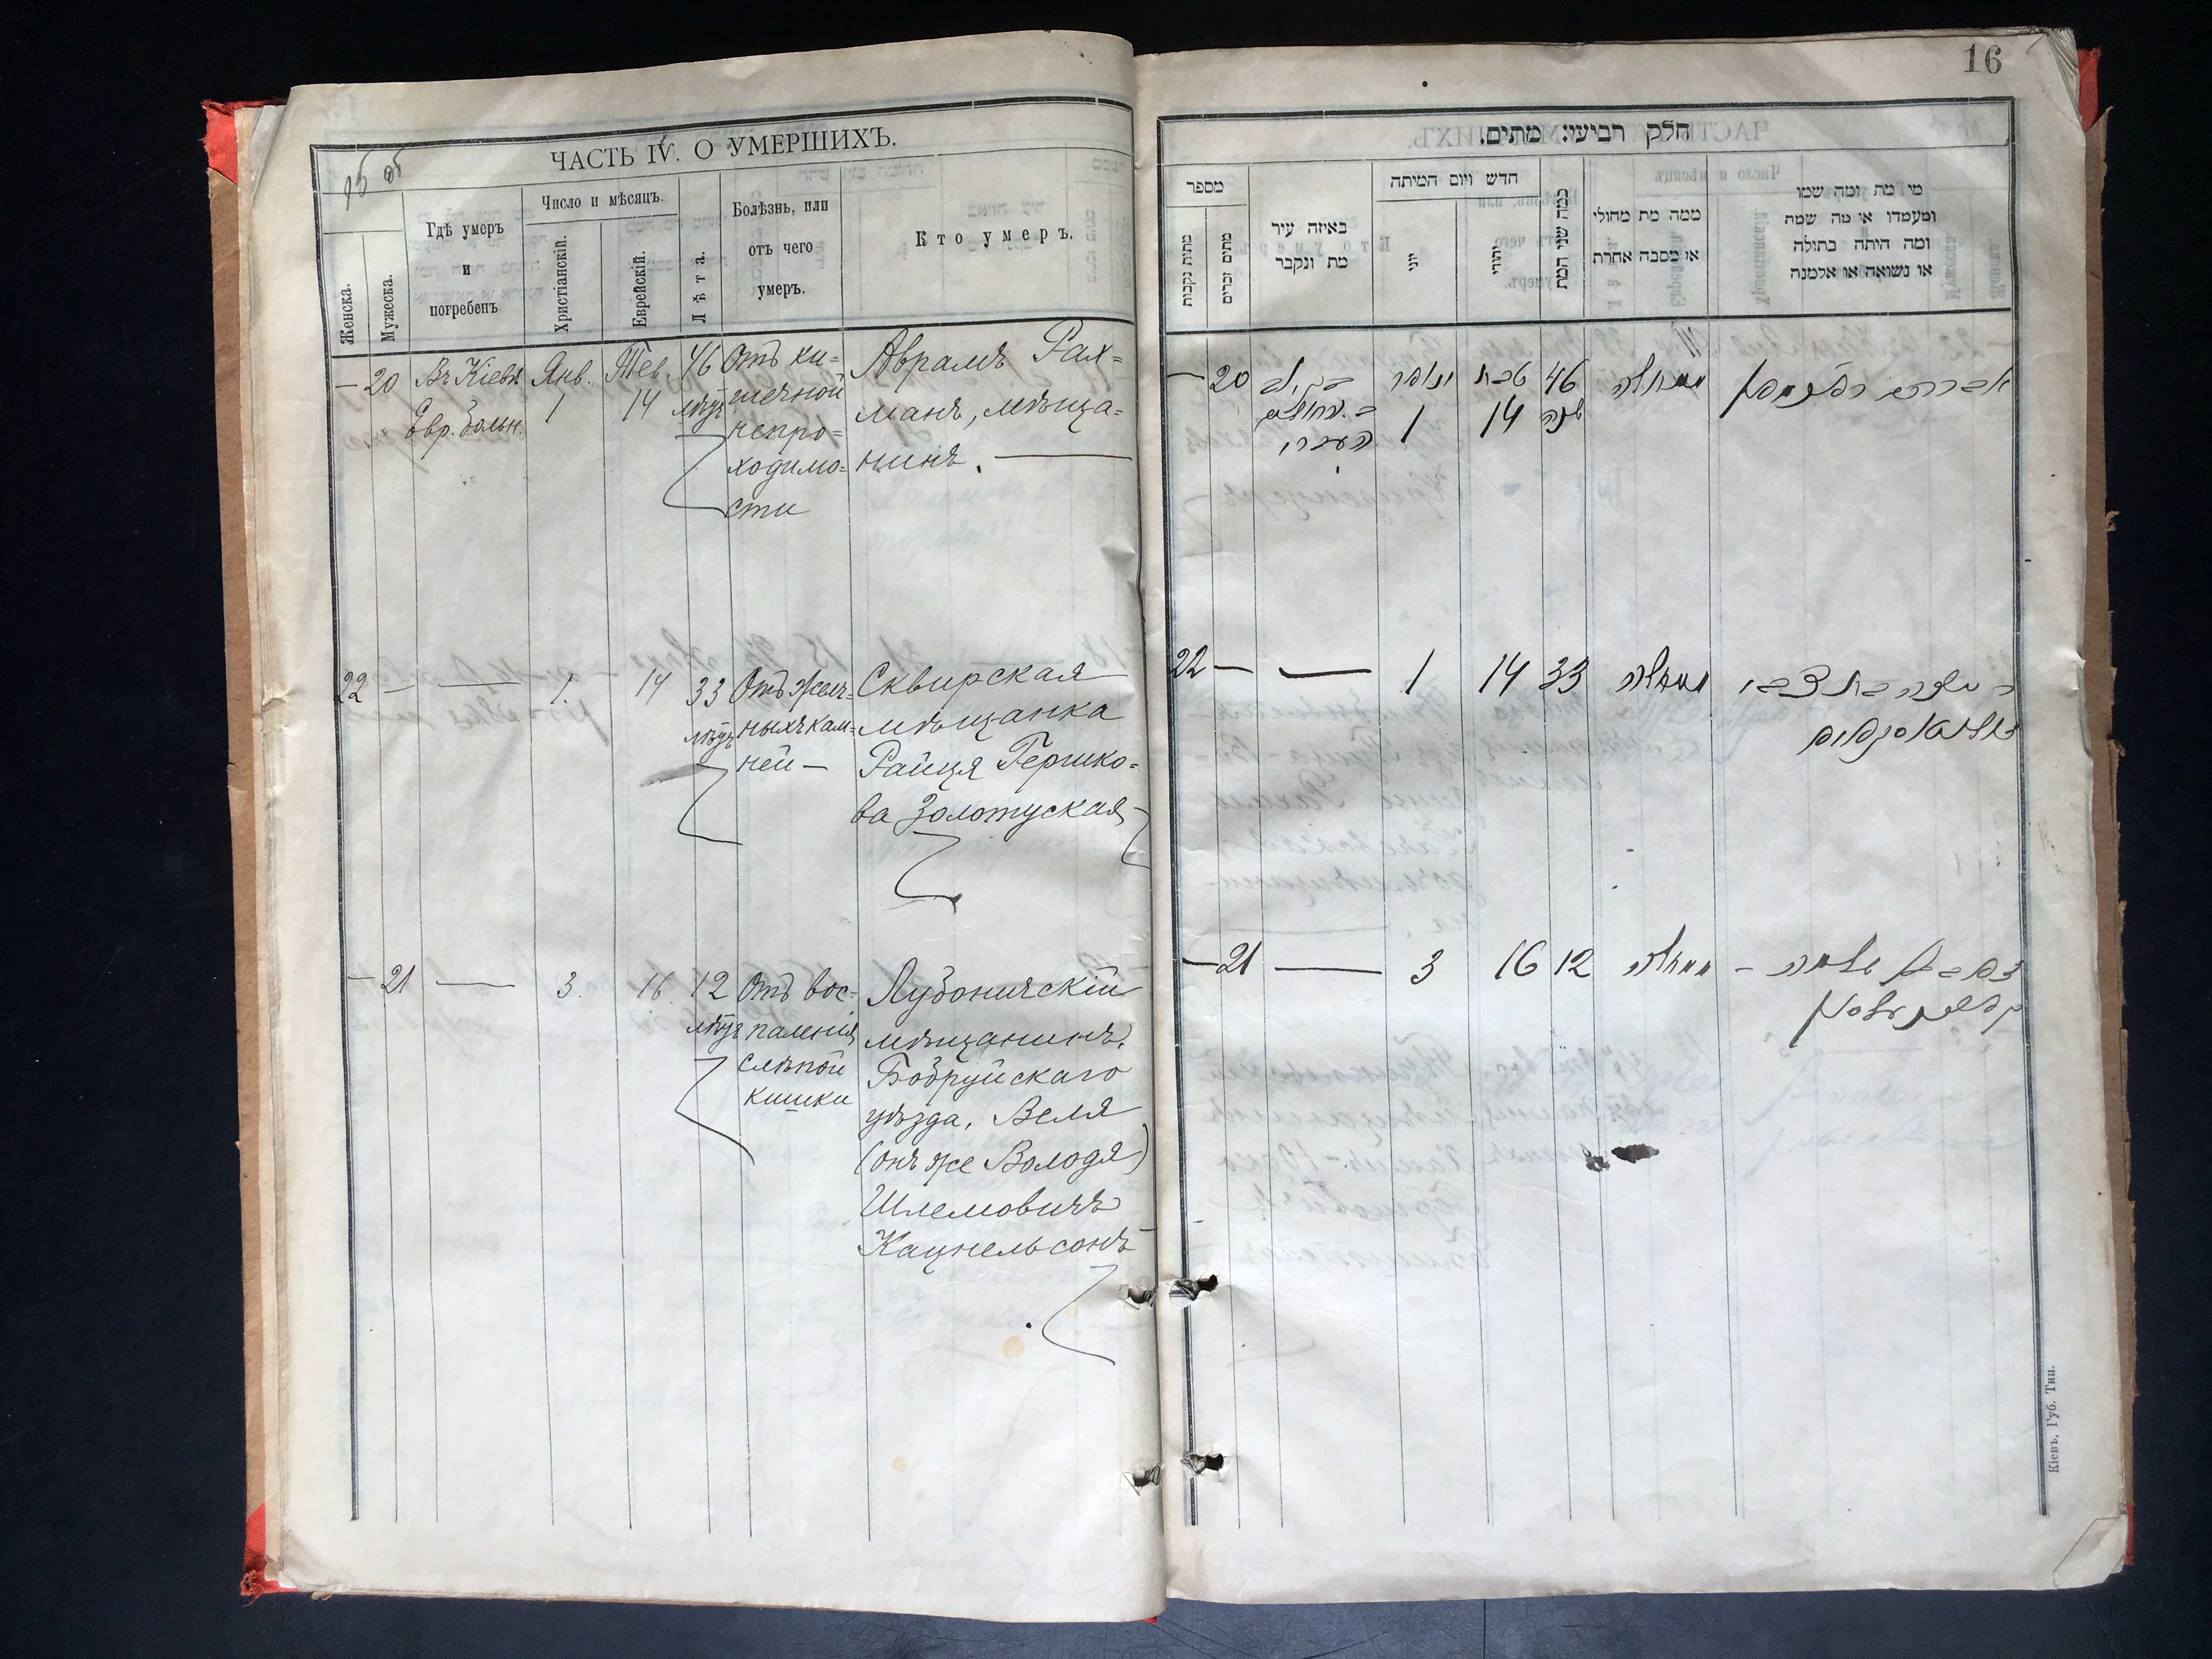 15 об
ЧАСТЬ IV. О УМЕРШИХЪ.
Женска.
Мужеска.
Гдѣ умеръ
и
погребенъ
Число и мѣсяцъ.
Христіанскій.
Еврейскій.
Лѣта.
Болѣзнь, или
отъ чего
умеръ.
Кто умеръ.
— 20 Въ Кіевѣ Янв. Тев. 46 Отъ ки=
Евр. больн. 1 14 лѣтъ шечной
непро=
ходимо=
сти
Аврамъ Рах=
манъ, мѣща=
нинъ. —
22 — — 1. 14 33 Отъ желч=
лѣтъ ныхъ кам=
ней —
Сквирская
мѣщанка
Райця Гершко=
ва Золотуская
— 21 — 3. 16 12 Отъ вос-
лѣтъ паленія
слѣпой
кишки
Лубоничскій
мѣщанинъ,
Бобруйскаго
уѣзда, Веля
(онъ же Володя)
Шлемовичъ
Кацнельсонъ
16
חלק רביעי: מתים.
מספר
מתות נקבות
מתים זכרים
באיזה עיר
מת ונקבר
חדש ויום המיתה
יוני
יהודי
כמה שני המת
ממה מת מחולי
או מסבה אחרת
מי מת ומה שמו
ומעמדו או מה שמת
ומה היתה בתולה
או נשואה או אלמנה
— 20
ינואר טבת 46 ממחלה
1 14 שנה
22 — — 1 14 33 ממחלה
— 21 — 3 16 12 ממחלה
Кіевъ, Губ. Тип.